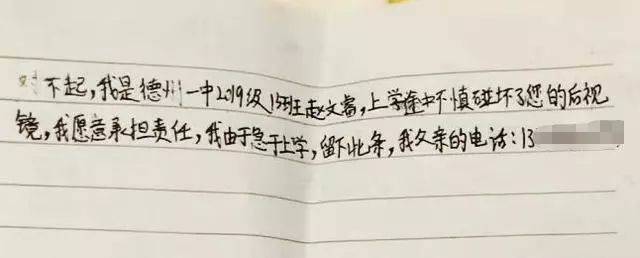 对不起,我是德州一中2019级15班赵文睿,上学途中不慎碰坏了您的后视
镜,我愿意承担责任,我由于急于上学,留下此条,我父亲的电话:13